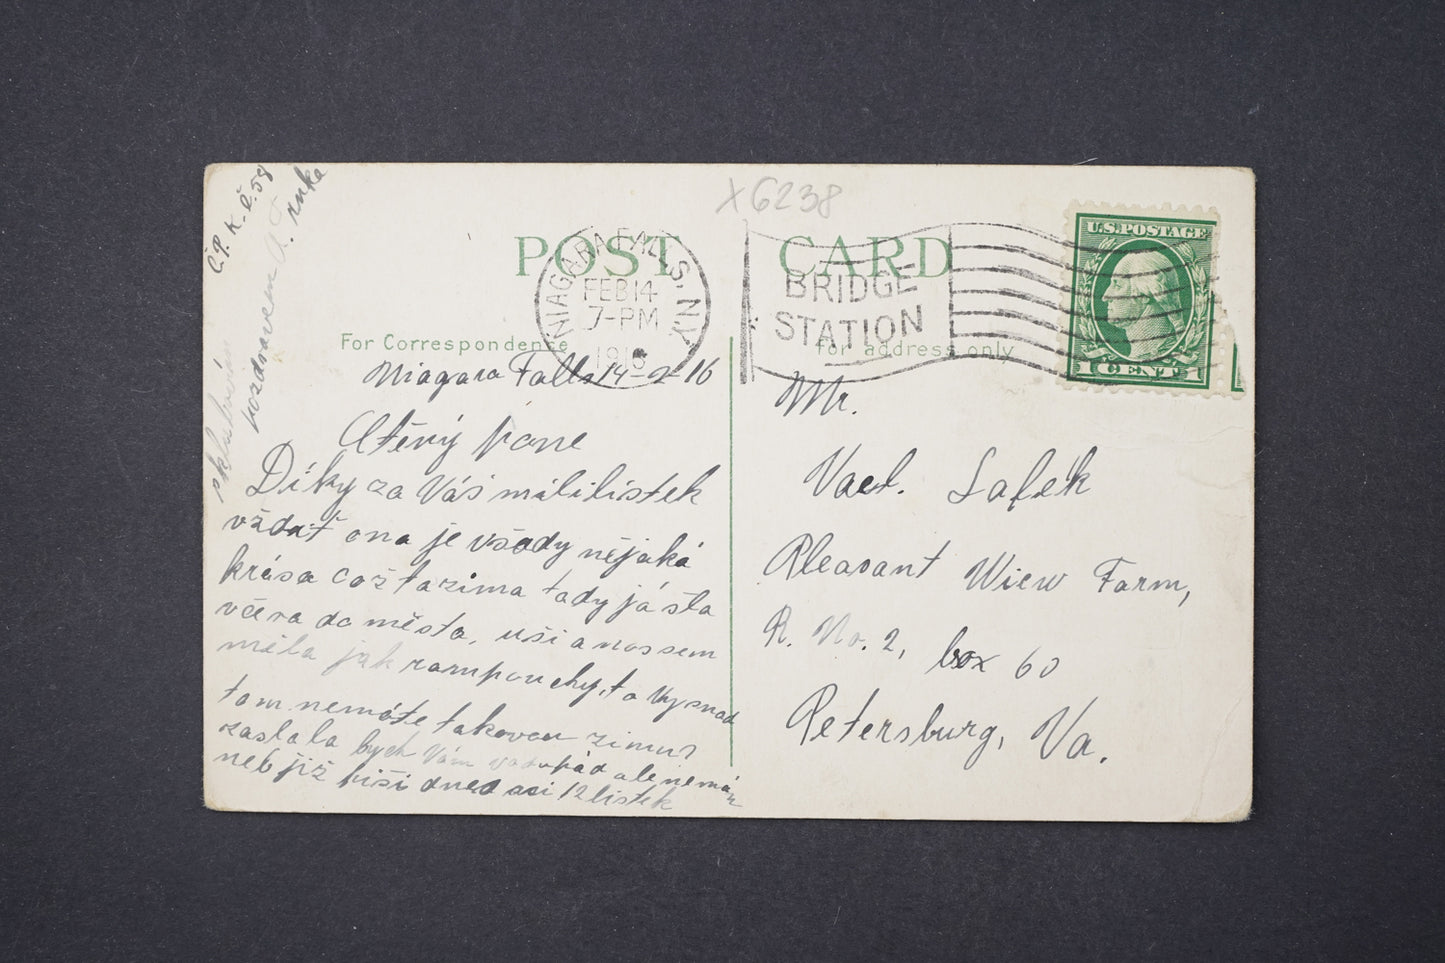 X6238
POST CARD
NIAGARA FALLS, N.Y.
FEB 14
7-PM
1916
BRIDGE
STATION
U.S. POSTAGE
1 CENT 1
For Correspondence
For address only
Niagara Falls 14-2-16
Ctěný pane
Díky za Váš milí lístek
vždať ona je všady nějaká
krása což ta zima tady já šla
včera do města, uši a nos sem
měla jak rampouchy, to Vy snad
tam nemáte takovou zimu?
zaslala bych Vám vodopád ale nemám
neb již píši dnes asi 12 lístek
pozdravem
Č.P.K.č.58
Mr.
Vacl. Safek
Pleasant Wiew Farm,
R. No. 2, box 60
Petersburg, Va.